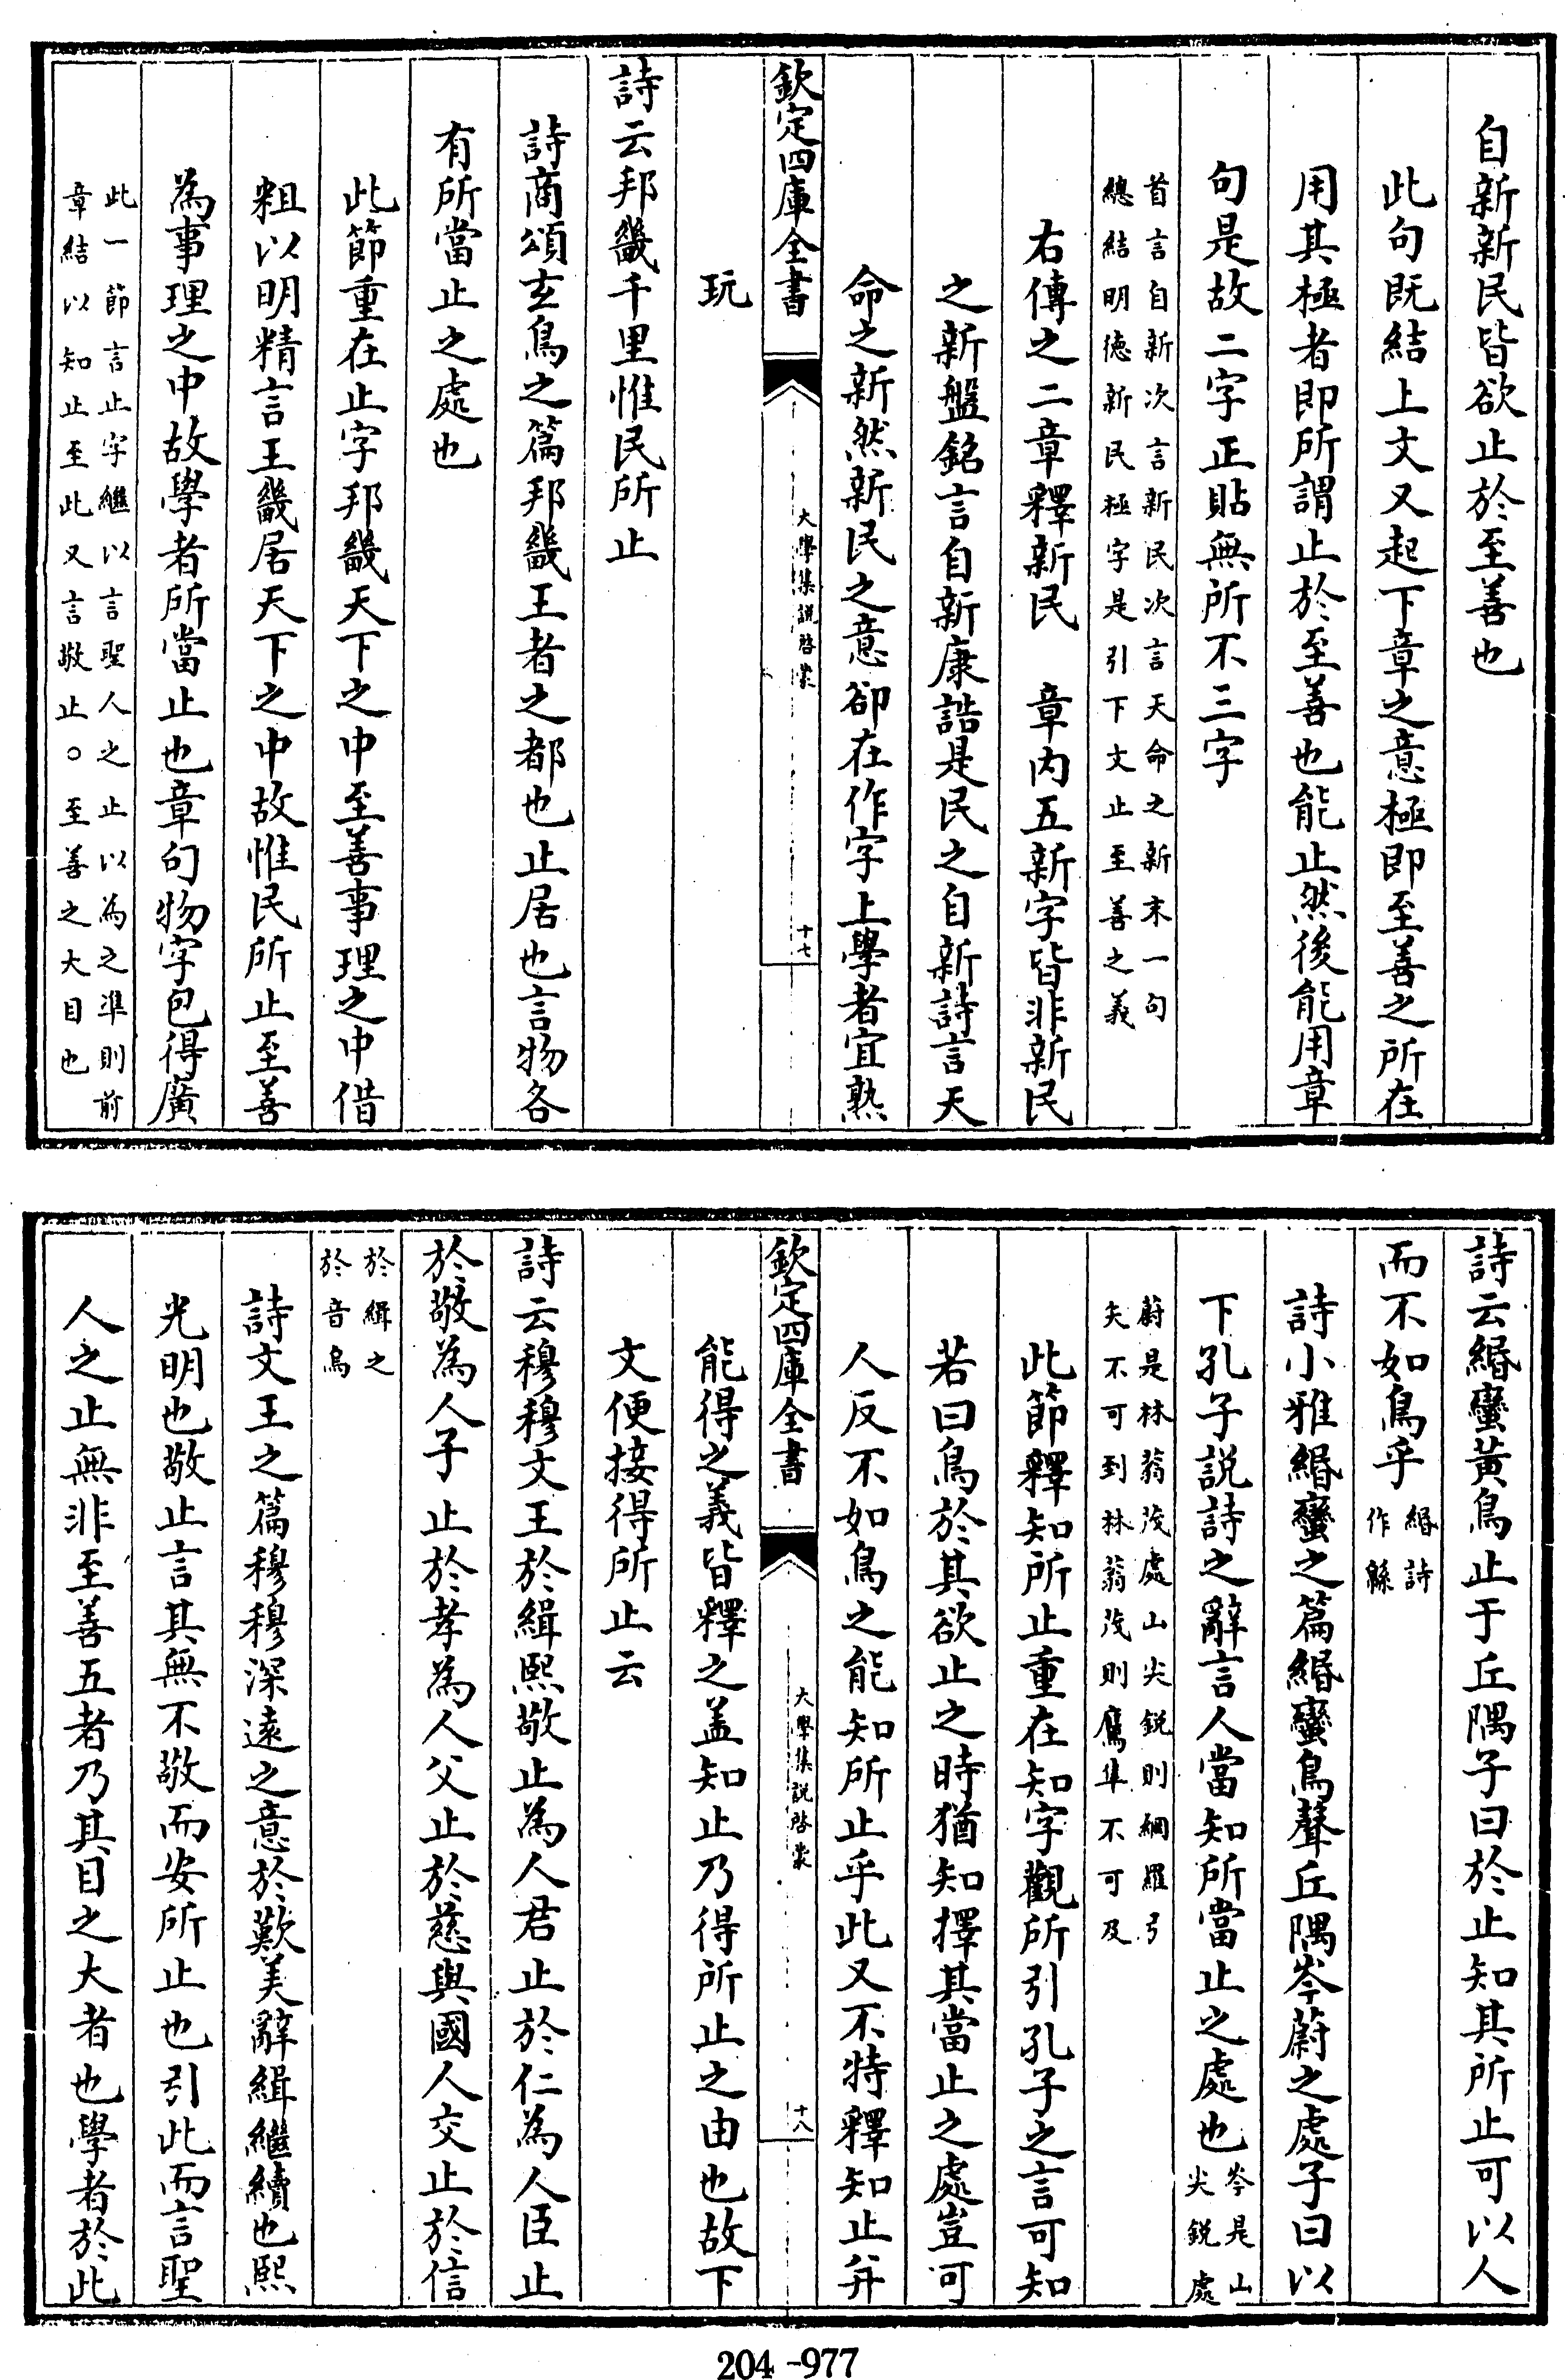 自新新民皆欲止於至善也
此句既結上文又起下章之意極即至善之所在
用其極者即所謂止於至善也能止然後能用章
句是故二字正貼無所不三字
首言自新次言新民次言天命之新末一句
總結明徳新民極字是引下文止至善之義
右傳之二章釋新民　章内五新字皆非新民
之新盤銘言自新康誥是民之自新詩言天
命之新然新民之意卻在作字上學者宜熟
欽定四庫全書
大學集說啓蒙
十七
玩
詩云邦畿千里惟民所止
詩商頌玄鳥之篇邦畿王者之都也止居也言物各
有所當止之處也
此節重在止字邦畿天下之中至善事理之中借
粗以明精言王畿居天下之中故惟民所止至善
為事理之中故學者所當止也章句物字包得廣
此一節言止字繼以言聖人之止以為之準則前
章結以知止至此又言敬止○至善之大目也
詩云緡蠻黃鳥止于丘隅子曰於止知其所止可以人
而不如鳥乎
緡詩
作緜
詩小雅緡蠻之篇緡蠻鳥聲丘隅岑蔚之處子曰以
下孔子說詩之辭言人當知所當止之處也
岑是山
尖銳處
蔚是林蓊茂處山尖銳則網羅弓
矢不可到林蓊茂則鷹隼不可及
此節釋知所止重在知字觀所引孔子之言可知
若曰鳥於其欲止之時猶知擇其當止之處豈可
人反不如鳥之能知所止乎此又不特釋知止并
欽定四庫全書
大學集說啓蒙
十八
能得之義皆釋之盖知止乃得所止之由也故下
文便接得所止云
詩云穆穆文王於緝熙敬止為人君止於仁為人臣止
於敬為人子止於孝為人父止於慈與國人交止於信
於緝之
於音烏
詩文王之篇穆穆深遠之意於歎美辭緝繼續也熙
光明也敬止言其無不敬而安所止也引此而言聖
人之止無非至善五者乃其目之大者也學者於此
204-977